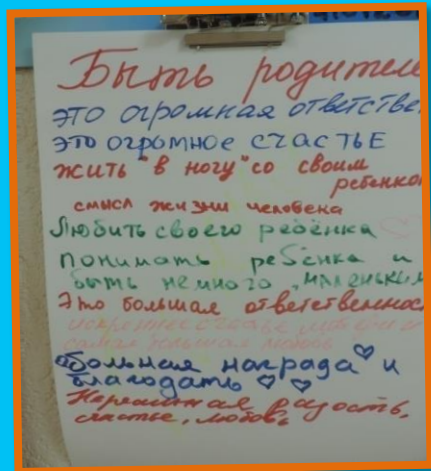 Быть родителе
это огромная ответстве
это огромное счастье
жить "в ногу" со своим
ребенко
смысл жизни человека
Любить своего ребёнка
понимать ребёнка и
быть немного „маленьким
Это большая ответственнос
искреннее счастье
самая большая любовь
Большая награда и
благодать
Нереальная радость,
счастье, любовь